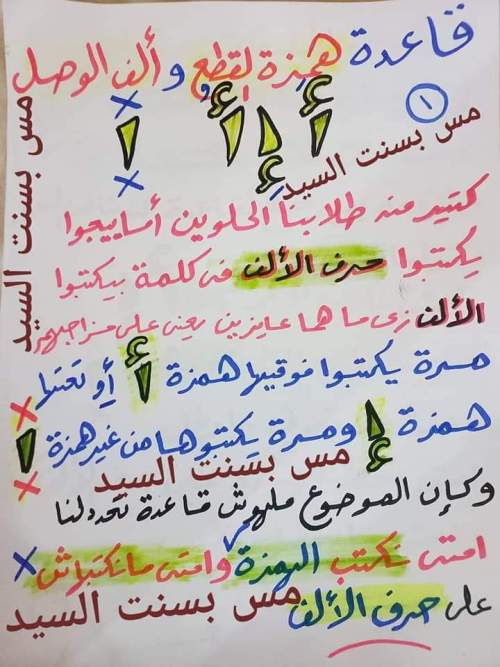 قاعدة همزة القطع و ألف الوصل
١
أ إ أُ ا
مس بسنت السيد
مس بسنت السيد
كتير من طلابنا الحلوين أما ييجوا
يكتبوا حرف الألف فى كلمة بيكتبوا
الألف زى ما هما عايزين يعنى على مزاجهم
مرة يكتبوا فوقيها همزة أ أو تحتها
همزة إ ومرة يكتبوها من غير همزة ا
مس بسنت السيد
وكإن الموضوع ملهوش قاعدة تحددلنا
امتى نكتب الهمزة وامتى مانكتبهاش
على حرف الألف
مس بسنت السيد